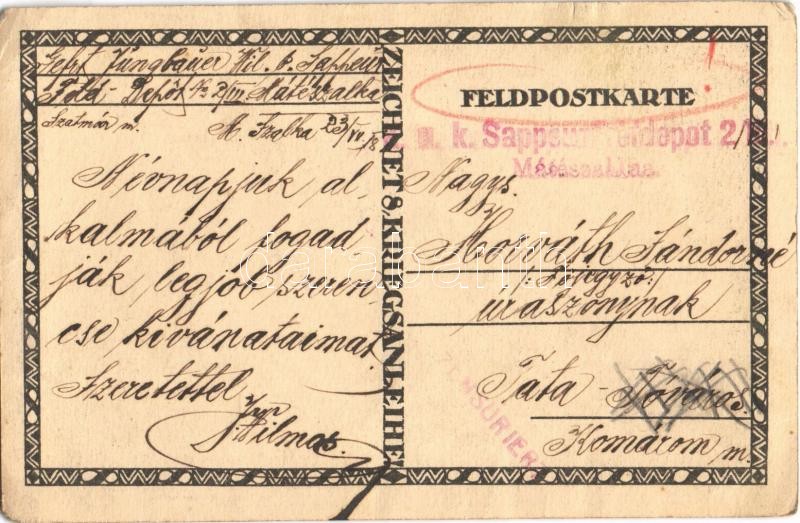 Gefrt Jungbauer Vil. k. Sappeur
Feld-Depot No 2/III Mátészalka
Szatmár m.
M. Szalka 23/IV /18
Névnapjuk al-
kalmából fogad
ják legjob szeren
cse kivánataimat
Szeretettel
Vilmos.
ZEICHNET 8. KRIEGSANLEIHE!
FELDPOSTKARTE
k. u. k. Sappeur Felddepot 2/III.
Mátészalka.
Nagys.
Horváth Sándorné
főjegyző
úraszonynak
Tata-Tóváros
Komárom m.
ZENSURIERT
darabanth